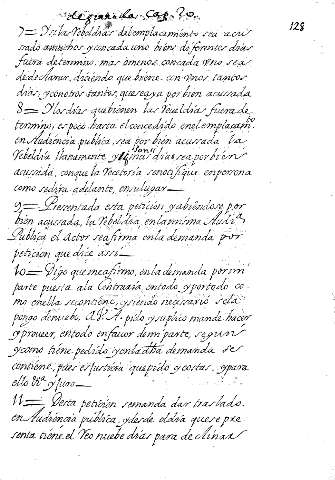 128
7= Si las Rebeldias del emplacamiento sea acu
sado amichos y en cada uno biene diferentes dias
fuera de termino, mas o menos en cada uno sea
de declarar, diciendo que biene con unos tantos
dias, y con otros tantos, que se aya por bien acussada
8= Y los dias que bienen las Reveldias fuera de
termino, es poco hasta el concedido en el emplacam.to
en Audiencia publica, sea por bien acusada la
Rebeldia llanamente y si son mas dia sea por bien
acussada, con que la Recetoria se notifique en persona
como se dira adelante, en su lugar
9= Presentado esta peticion y abiendose por
bien acusada, la Rebeldia, en la misma Audi.a
Publica el Actor se afirma en la demanda por
peticion que dice assi
10= Digo que me afirmo, en la demanda por mi
parte puesta a la Contraria, en todo, y por todo co
mo en ella se contiene, y siendo necesario se la
pongo de nuebo, A V. A. pido y suplico mande hacer
y proveer, en todo en favor de mi parte, segun
y como tiene pedido y en la dha demanda se
contiene, pues es justicia que pido y costas, y para
ello &a. y juro
11= Desta peticion se manda dar traslado
en Audiencia publica, y desde el dia que se pre
senta tiene el Reo nuebe dias para declinar